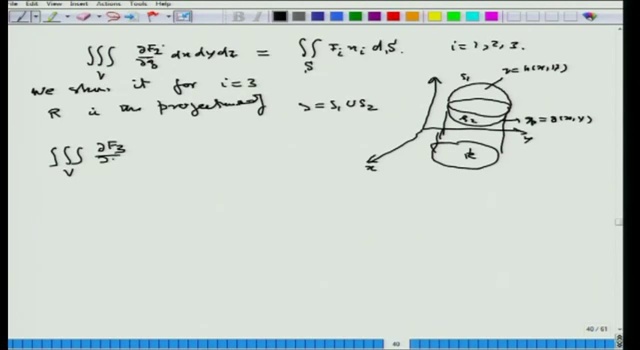 Actions Edit View Insert Tools Help
∭_V ∂F_i/∂x_i dxdydz = ∬_S F_i n_i dS. i=1,2,3.
We show it for i=3
R is the projection of S = S_1 ∪ S_2
∭_V ∂F_3
S_1
z=h(x,y)
S_2
z=g(x,y)
y
x
R
40 / 61
40